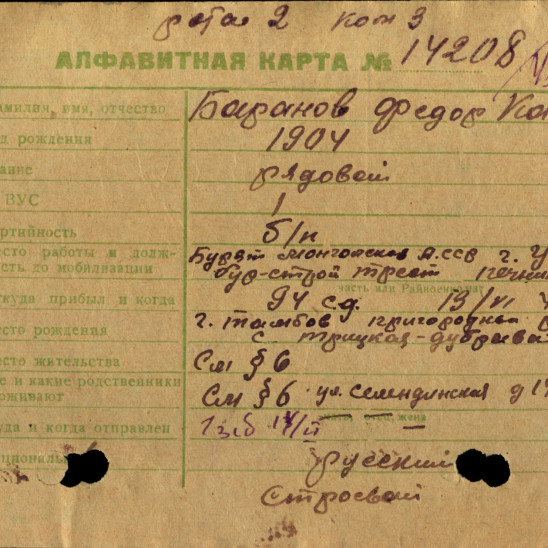 рота 2 ком 3
АЛФАВИТНАЯ КАРТА № 14208
амилия, имя, отчество Баранов Федор Ка
д рождения 1904
ание рядовой
ВУС 1
ртийность б/п
есто работы и долж- Бурят Монгольская А.ССР г. У
ость до мобилизации бур-строй трест печни
часть или Райвоенкомат
ткуда прибыл и когда 94 с.д. 19/VI 4
есто рождения г. Тамбов пригородный
с. Трицкая-дубрава
есто жительства См § 6
е и какие родственники
оживают См § 6 ул. Семендинская д 1
мать, отец, жена
уда и когда отправлен 1 зсб /II
циональ русский
строевой